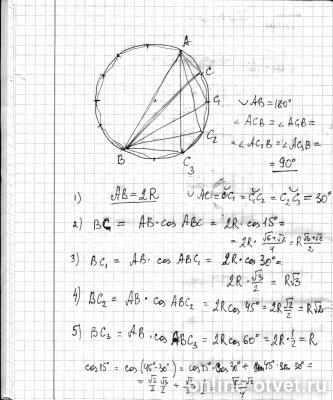 A
C
C₁
C₂
C₃
B
◡AB = 180°
∠ACB = ∠AC₁B =
= ∠AC₂B = ∠AC₃B =
= 90°
1) AB = 2R ◡AC = ◡CC₁ = ◡C₁C₂ = ◡C₂C₃ = 30°
2) BC = AB · cos ABC = 2R · cos 15° =
= 2R · (√6+√2)/4 = R (√6+√2)/2
3) BC₁ = AB · cos ABC₁ = 2R · cos 30° =
2R · √3/2 = R√3
4) BC₂ = AB · cos ABC₂ = 2R cos 45° = 2R √2/2 = R√2
5) BC₃ = AB · cos ABC₃ = 2R cos 60° = 2R · 1/2 = R
cos 15° = cos (45°-30°) = cos 45° · cos 30° + sin 45° · sin 30° =
= √2/2 · √3/2 +
online-otvet.ru